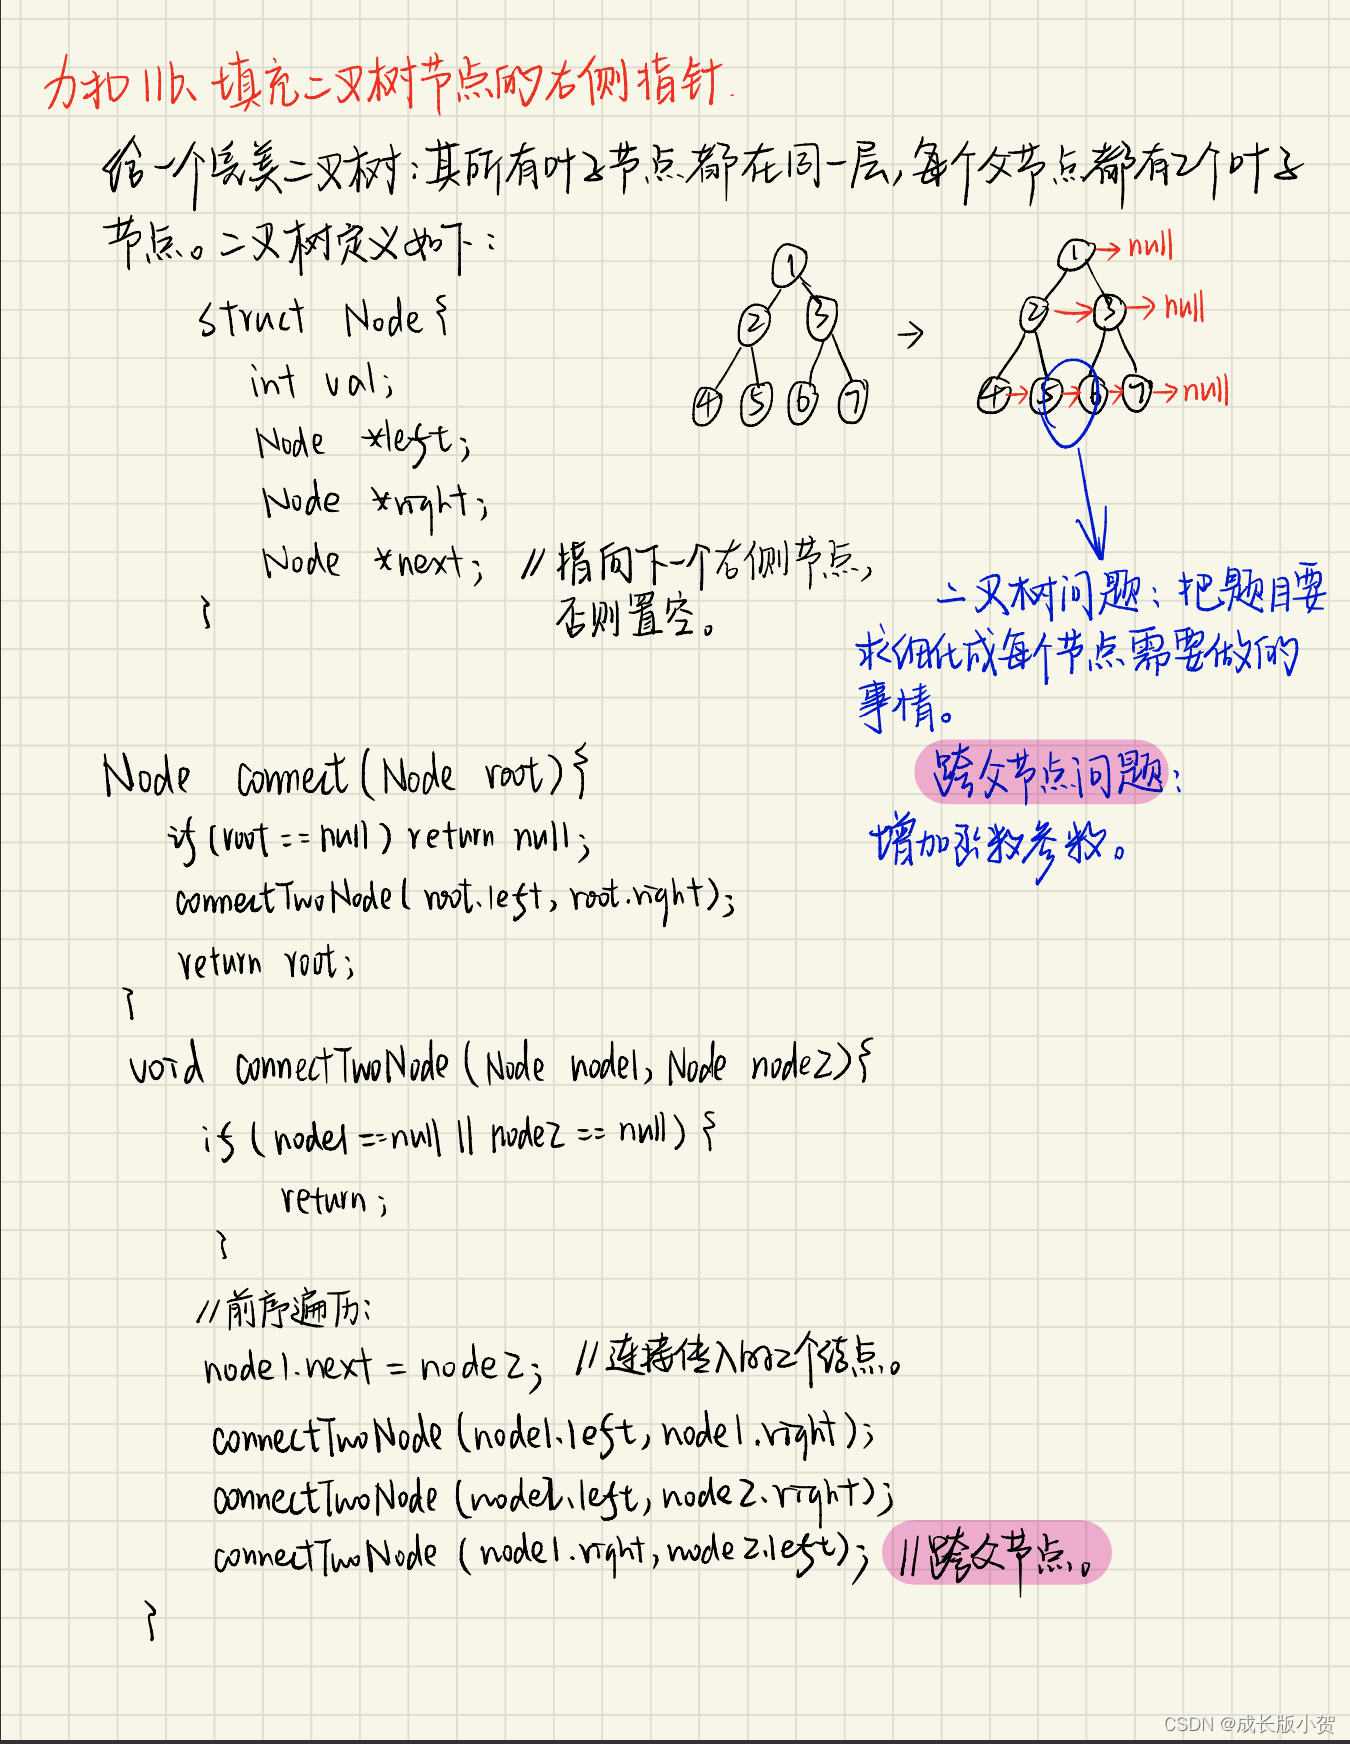 力扣116、填充二叉树节点的右侧指针.
给一个完美二叉树：其所有叶子节点都在同一层,每个父节点都有2个叶子
节点。二叉树定义如下：
struct Node {
int val;
Node *left;
Node *right;
Node *next; //指向下一个右侧节点,
否则置空。
}
1
2 3
4 5 6 7
→
1 → null
2 → 3 → null
4 → 5 → 6 → 7 → null
二叉树问题：把题目要
求细化成每个节点需要做的
事情。
跨父节点问题：
增加函数参数。
Node connect (Node root) {
if (root == null) return null;
connectTwoNode( root.left, root.right);
return root;
}
void connectTwoNode (Node node1, Node node2) {
if ( node1 == null || node2 == null) {
return ;
}
//前序遍历：
node1.next = node2; //连接传入的2个结点。
connectTwoNode (node1.left, node1.right);
connectTwoNode (node2.left, node2.right);
connectTwoNode (node1.right, node2.left); //跨父节点。
}
CSDN @成长版小贺